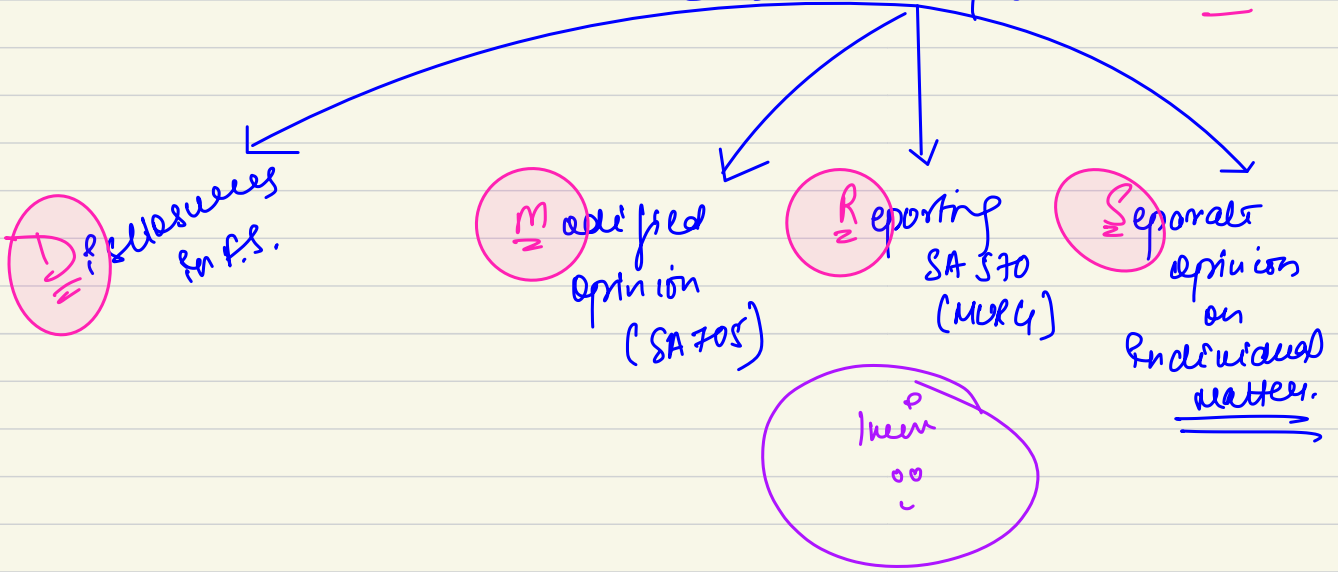 Disclosures
in F.S.
Modified
opinion
(SA 705)
Reporting
SA 570
(MURG)
Separate
opinion
on
individual
matter.